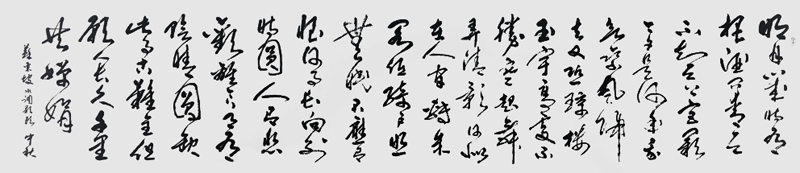 明月幾時有
把酒問青天
不知天上宮闕
今夕是何年我
欲乘風歸
去又恐瓊樓
玉宇高處不
勝寒起舞
弄清影何似
在人間轉朱
閣低綺戶照
無眠不應有
恨何事長向別
時圓人有悲
歡離合月有
陰晴圓缺
此事古難全但
願人長久千里
共嬋娟
蘇東坡水調歌頭 中秋